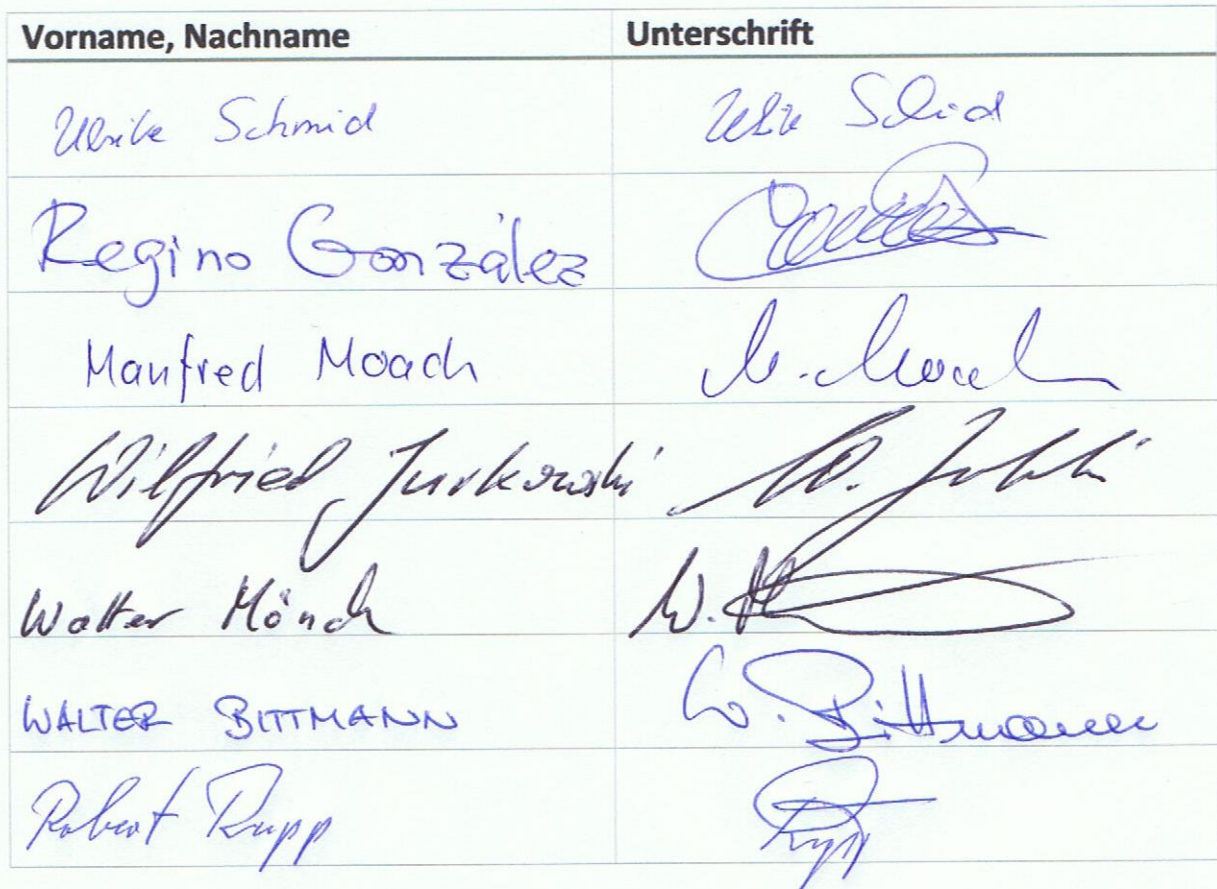 Vorname, Nachname Unterschrift
Ulrike Schmid
Regino González
Manfred Moach M. Moach
Wilfried Jurkowski W.
Walter Mönch W.
WALTER BITTMANN W. Bittmann
Robert Rupp Rupp